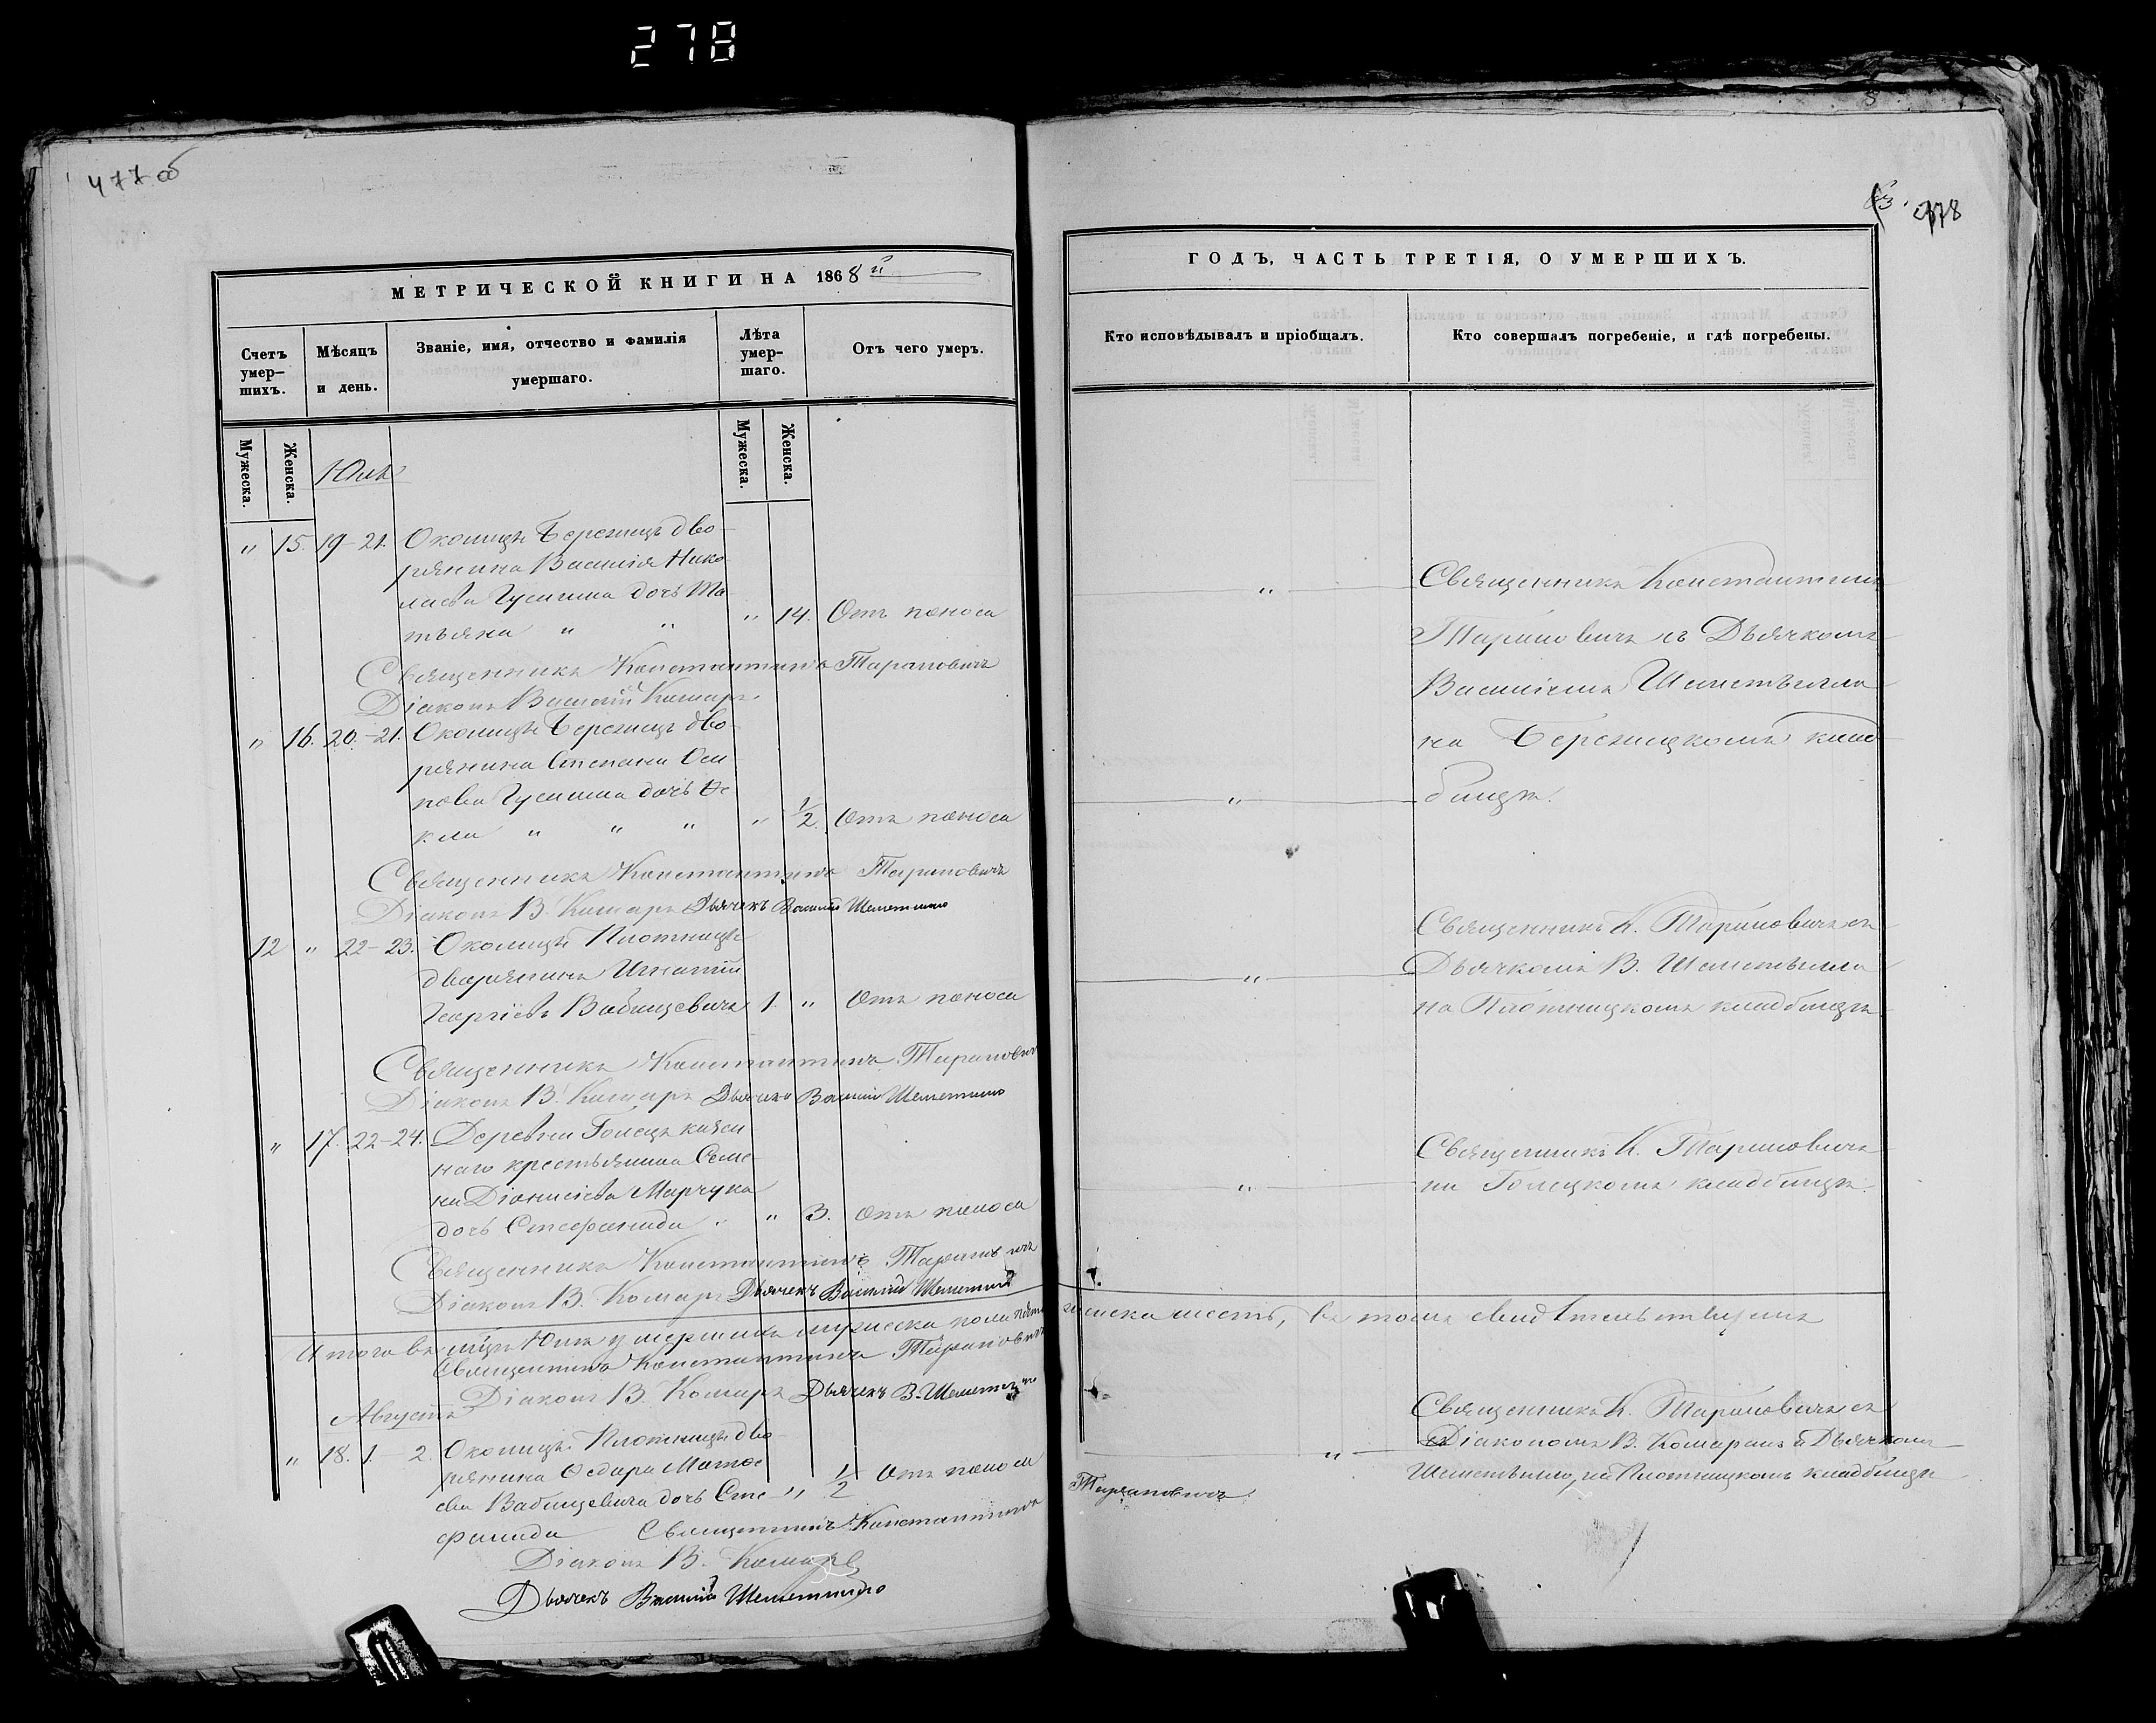 278
477 об
МЕТРИЧЕСКОЙ КНИГИ НА 1868й
Счетъ умер-шихъ.
Мѣсяцъ и день.
Званіе, имя, отчество и фамилія умершаго.
Лѣта умер-шаго.
Отъ чего умеръ.
Мужеска.
Женска.
Мужеска.
Женска.
Юля
" 15. 19-21. Околицы Бережицъ дво-
рянина Василія Нико
лаева Гусшина дочь Та
тьяна " " " 14. Отъ поноса
Священникъ Константинъ Тарановичъ
Діаконъ Василій Комаръ
" 16. 20.-21. Околицы Бережицъ дво-
рянина Степана Оси
пова дочь Ѳе
кла " " " " 1/2. Отъ поноса
Священникъ Константинъ Тарановичъ
Діаконъ В. Комаръ Дьячекъ Василій Шеметилло
12 " 22-23. Околицы Плотницы
дворянинъ Игнатій
Георгіевъ Вабищевичъ 1. " Отъ поноса
Священникъ Константинъ Тарановичъ
Діаконъ В. Комаръ Дьячекъ Василій Шеметилло
" 17. 22-24. Деревни Голецъ казен
наго крестьянина Семе
на Діонисіева Марчука
дочь Стефанида " " 3. Отъ поноса
Священникъ Константинъ Тарановичъ
Діаконъ В. Комаръ Дьячекъ Василій Шеметилло
Итого въ м-цѣ Юлѣ умершихъ мужеска пола
Священникъ Константинъ Тарановичъ
Діаконъ В. Комаръ Дьячекъ В. Шеметилло
Августъ
" 18. 1-2. Околицы Плотницы дво-
рянина Ѳедора Матѳе
ева Вабищевича дочь Сте " 1/2 Отъ поноса
фанида Священникъ Константинъ
Діаконъ В. Комаръ
Дьячекъ Василій Шеметилло
63. 478
ГОДЪ, ЧАСТЬ ТРЕТІЯ, О УМЕРШИХЪ.
Кто исповѣдывалъ и пріобщалъ.
Кто совершалъ погребеніе, и гдѣ погребены.
" Священникъ Константинъ
Тарановичъ съ Дьячкомъ
Василіемъ Шеметылло
на Бережицкомъ клад
" бищѣ.
Священникъ К. Тарановичъ съ
" Дьячкомъ В. Шеметылло
на Плотницкомъ кладбищѣ
Священникъ К. Тарановичъ
" на Голецкомъ кладбищѣ.
женска шесть, въ томъ свидѣтельствуемъ
Священникъ К. Тарановичъ съ
" Діакономъ В. Комаромъ и Дьячкомъ
Шеметылло, на Плотницкомъ кладбищѣ
Тарановичъ